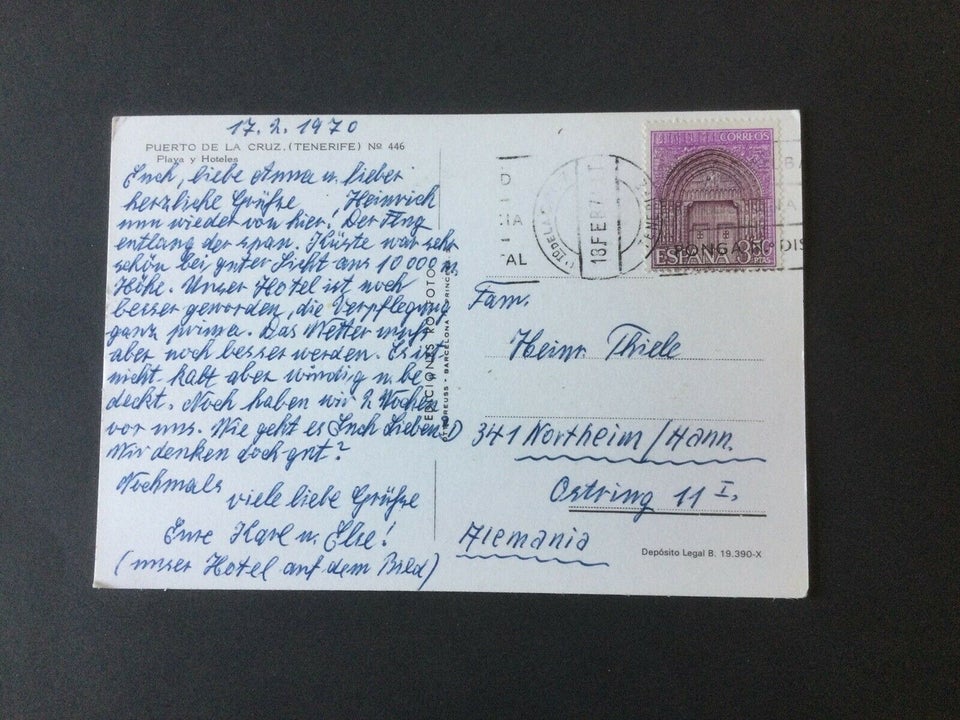 17.2.1970
PUERTO DE LA CRUZ. (TENERIFE) Nº 446
Playa y Hoteles
Euch, liebe Anna u. lieber
herzliche Grüße Heinrich
nun wieder von hier! Der Flug
entlang der span. Küste war sehr
schön bei guter Sicht aus 10 000 m
Höhe. Unser Hotel ist noch
besser geworden, die Verpflegung
ganz prima. Das Wetter muß
aber noch besser werden. Es ist
nicht kalt aber windig u. be
deckt. Noch haben wir 2 Wochen
vor uns. Wie geht es Euch Lieben
Wir denken doch gut?
Nochmals
viele liebe Grüße
Eure Karl u. Else!
(unser Hotel auf dem Bild)
EDICIONES FOTO
BARCELONA
CORREOS
ESPAÑA 3,50
PTAS
18 FEB 7
TENERIFE
PONGA
DIS
TAL
Fam.
Heinr. Thiele
D 341 Northeim/Hann.
Ostring 11 I.
Alemania
Depósito Legal B. 19.390-X